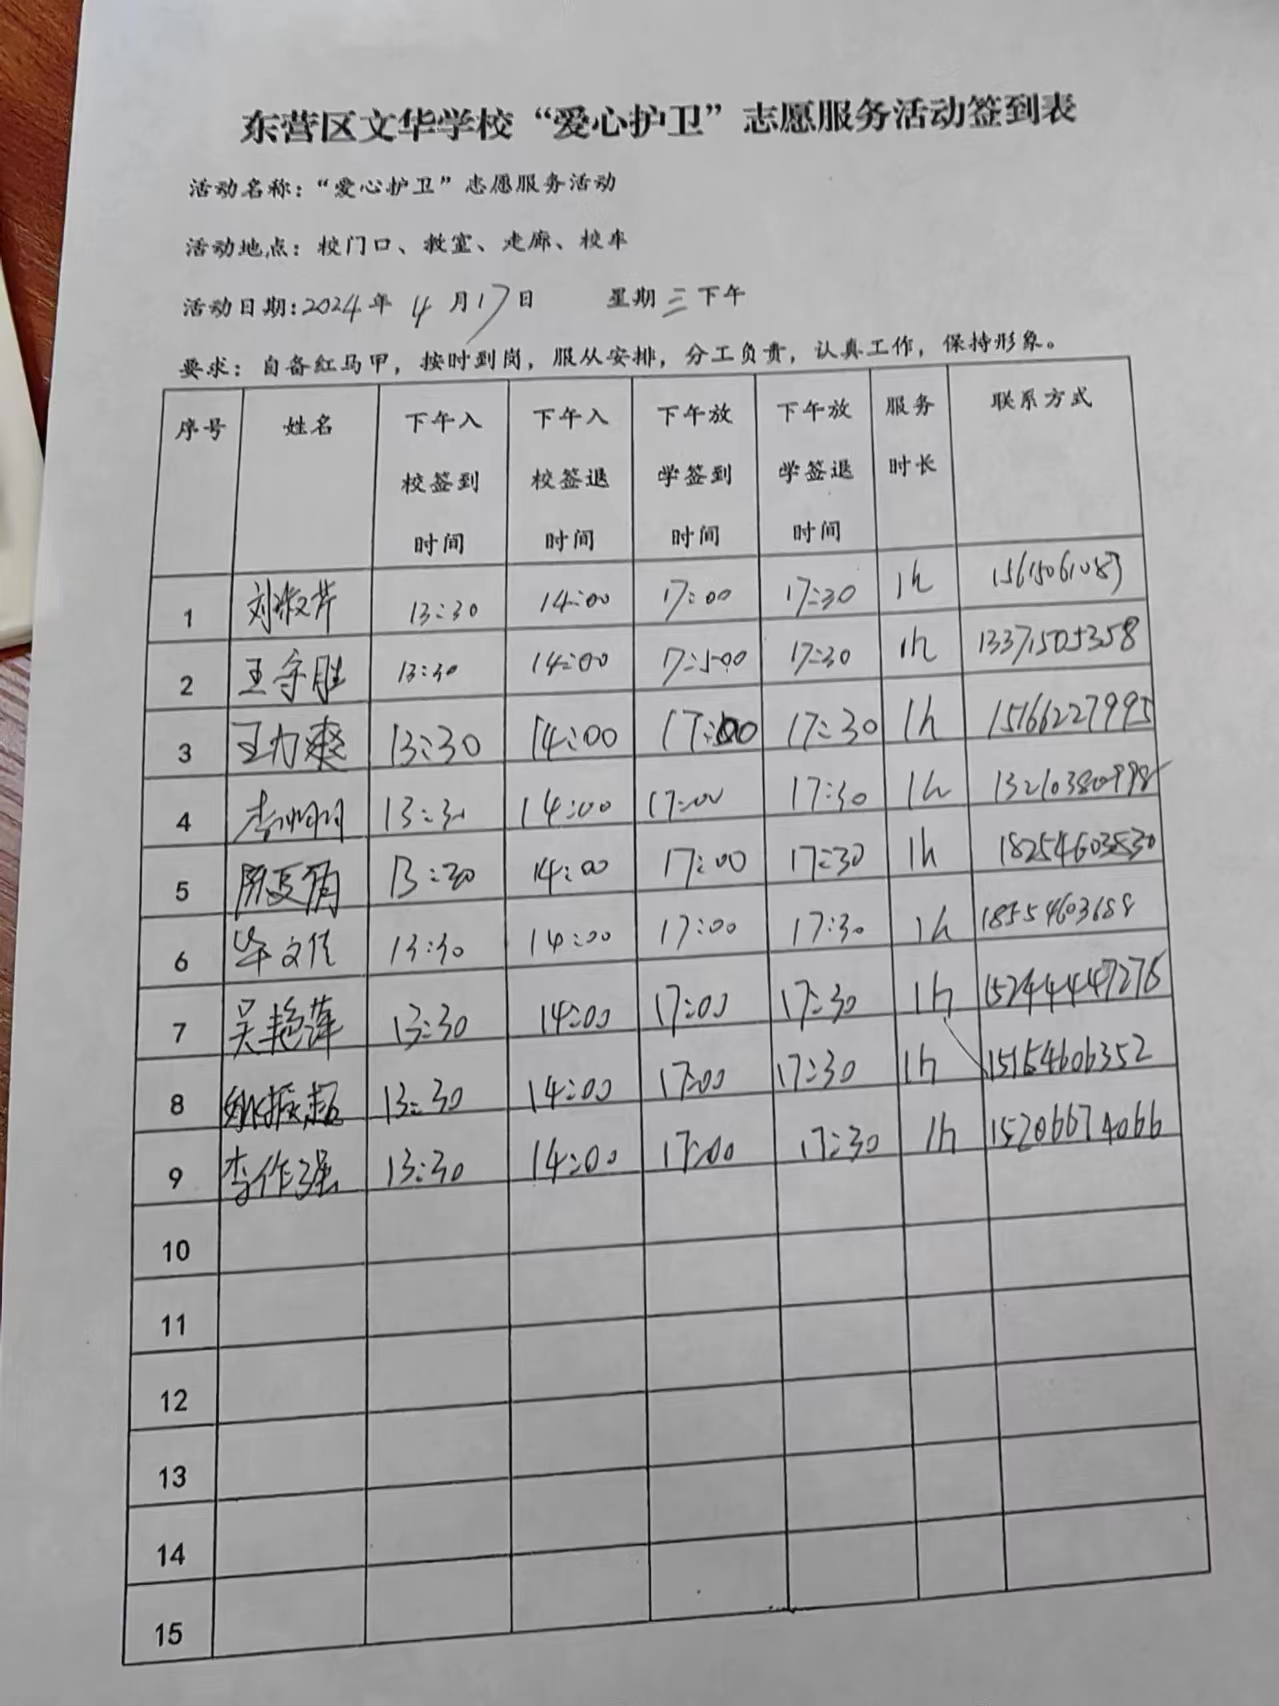 东营区文华学校“爱心护卫”志愿服务活动签到表
活动名称：“爱心护卫”志愿服务活动
活动地点：校门口、教室、走廊、校车
活动日期：2024年 4月17日 星期三下午
要求：自备红马甲，按时到岗，服从安排，分工负责，认真工作，保持形象。
序号 姓名 下午入校签到时间 下午入校签退时间 下午放学签到时间 下午放学签退时间 服务时长 联系方式
1 刘淑芹 13:30 14:00 17:00 17:30 1h
2 王守胜 13:30 14:00 17:00 17:30 1h 13371505358
3 王力爽 13:30 14:00 17:00 17:30 1h 15166227995
4 13:30 14:00 17:00 17:30 1h 13210380998
5 13:30 14:00 17:00 17:30 1h 18254603830
6 毕文佳 13:30 14:00 17:00 17:30 1h 18554603688
7 吴艳萍 13:30 14:00 17:00 17:30 1h 15244447276
8 13:30 14:00 17:00 17:30 1h 15154606352
9 李作强 13:30 14:00 17:00 17:30 1h 15206674066
10
11
12
13
14
15